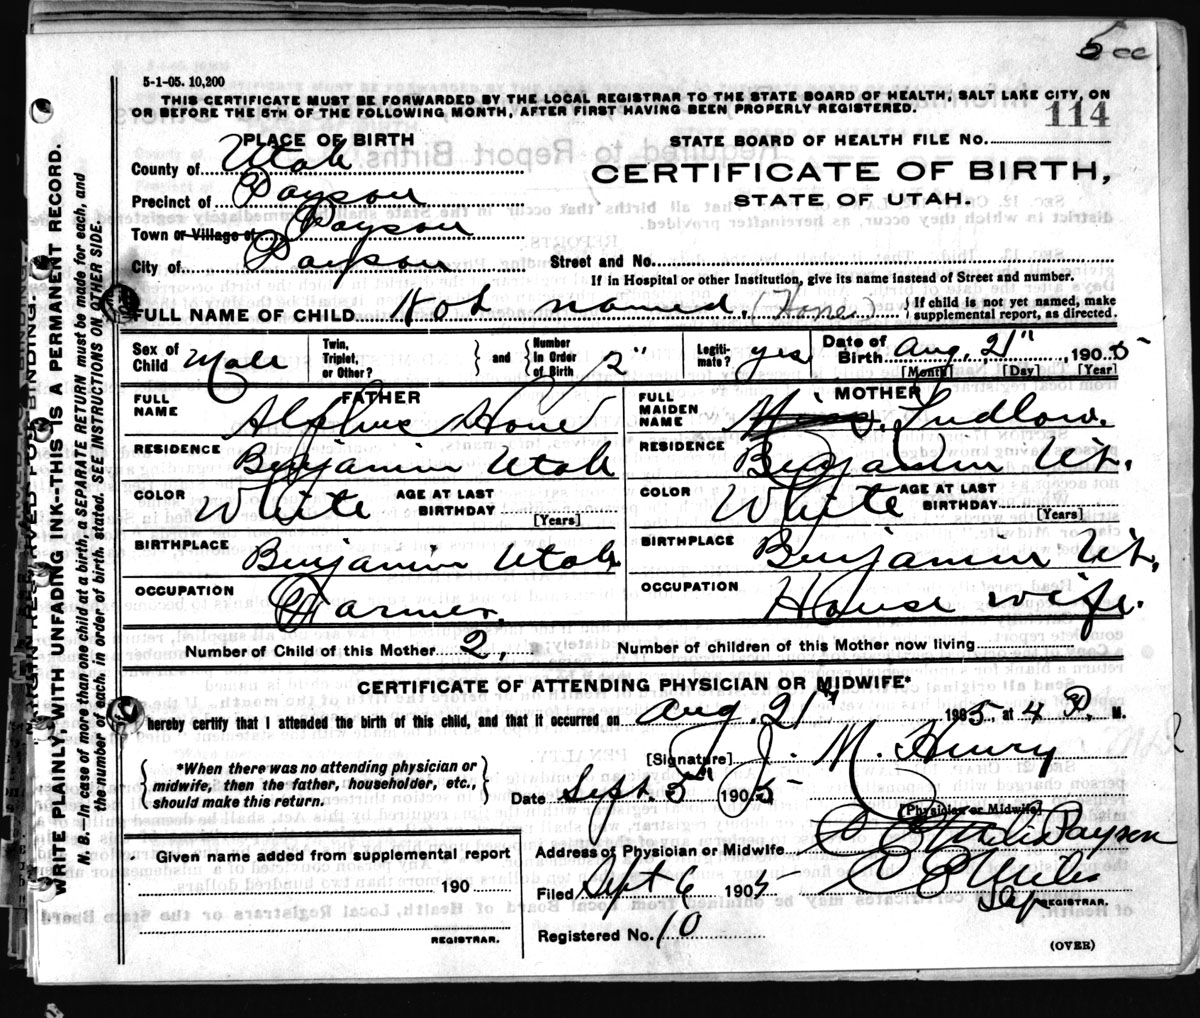 5 cc
5-1-05. 10,200
THIS CERTIFICATE MUST BE FORWARDED BY THE LOCAL REGISTRAR TO THE STATE BOARD OF HEALTH, SALT LAKE CITY, ON
OR BEFORE THE 5TH OF THE FOLLOWING MONTH, AFTER FIRST HAVING BEEN PROPERLY REGISTERED.
114
PLACE OF BIRTH
STATE BOARD OF HEALTH FILE No.
County of Utah
CERTIFICATE OF BIRTH,
Precinct of Payson
STATE OF UTAH.
Town or Village of Payson
City of Payson
Street and No.
If in Hospital or other Institution, give its name instead of Street and number.
FULL NAME OF CHILD Not named. (Hone)
If child is not yet named, make supplemental report, as directed.
Sex of Child Male
Twin, Triplet, or Other?
and
Number In Order of Birth 2"
Legiti- mate? yes
Date of Birth Aug. 21", 1905
[Month] [Day] [Year]
FATHER
FULL NAME Alpheus Hone
RESIDENCE Benjamin Utah
COLOR White
AGE AT LAST BIRTHDAY
[Years]
BIRTHPLACE Benjamin Utah
OCCUPATION Farmer.
MOTHER
FULL MAIDEN NAME Ludlow.
RESIDENCE Benjamin Ut.
COLOR White
AGE AT LAST BIRTHDAY
[Years]
BIRTHPLACE Benjamin Ut.
OCCUPATION House wife.
Number of Child of this Mother 2.
Number of children of this Mother now living
CERTIFICATE OF ATTENDING PHYSICIAN OR MIDWIFE*
hereby certify that I attended the birth of this child, and that it occurred on Aug. 21 1905 at 4 P. M.
[Signature] J. M. Henry
*When there was no attending physician or midwife, then the father, householder, etc., should make this return.
Date Sept. 5 1905
[Physician or Midwife]
Address of Physician or Midwife Payson
Given name added from supplemental report
190
REGISTRAR.
Filed Sept 6 1905
Dep REGISTRAR.
Registered No. 10
(OVER)
MARGIN RESERVED FOR BINDING.
WRITE PLAINLY, WITH UNFADING INK--THIS IS A PERMANENT RECORD.
N. B.--In case of more than one child at a birth, a SEPARATE RETURN must be made for each, and
the number of each, in order of birth, stated. SEE INSTRUCTIONS ON OTHER SIDE.